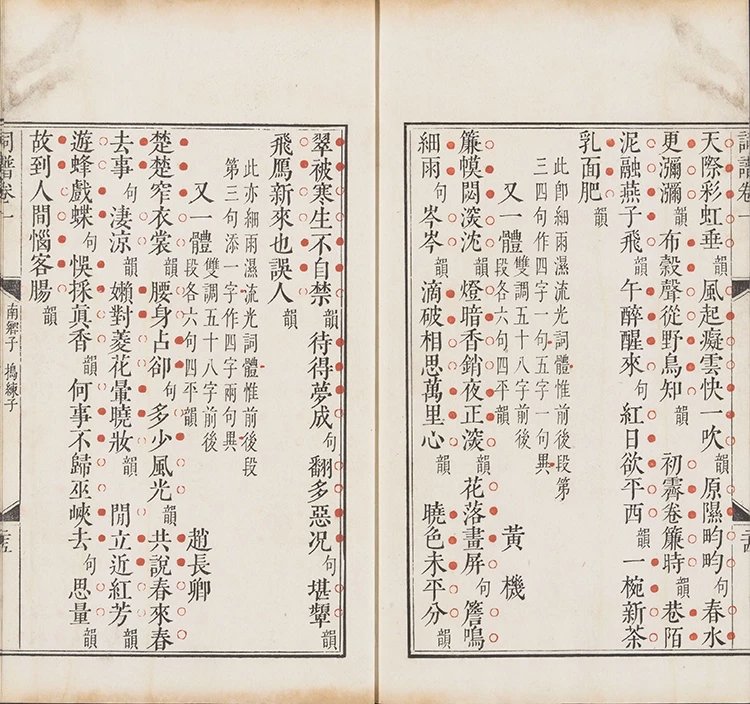 詞譜卷一
天際彩虹垂韻風起癡雲快一吹韻原隰畇畇句春水
更瀰瀰韻布穀聲從野鳥知韻初霽卷簾時韻巷陌
泥融燕子飛韻午醉醒來句紅日欲平西韻一椀新茶
乳面肥韻
此即細雨濕流光詞體惟前後段第
三四句作四字一句五字一句異
又一體雙調五十八字前後
段各六句四平韻
黃機
簾幙閟㴱沈韻燈暗香銷夜正㴱韻花落畫屏句簷鳴
細雨句岑岑韻滴破相思萬里心韻曉色未平分韻
翠被寒生不自禁韻待得夢成句翻多惡況句堪顰韻
飛鴈新來也誤人韻
此亦細雨濕流光詞體惟前後段
第三句添一字作四字兩句異
又一體雙調五十八字前後
段各六句四平韻
趙長卿
楚楚窄衣裳韻腰身占卻句多少風光韻共說春來春
去事句淒涼韻嬾對菱花暈曉妝韻閒立近紅芳韻
遊蜂戲蝶句悞採眞香韻何事不歸巫峽去句思量韻
故到人間惱客腸韻
詞譜卷一
南鄉子 搗練子